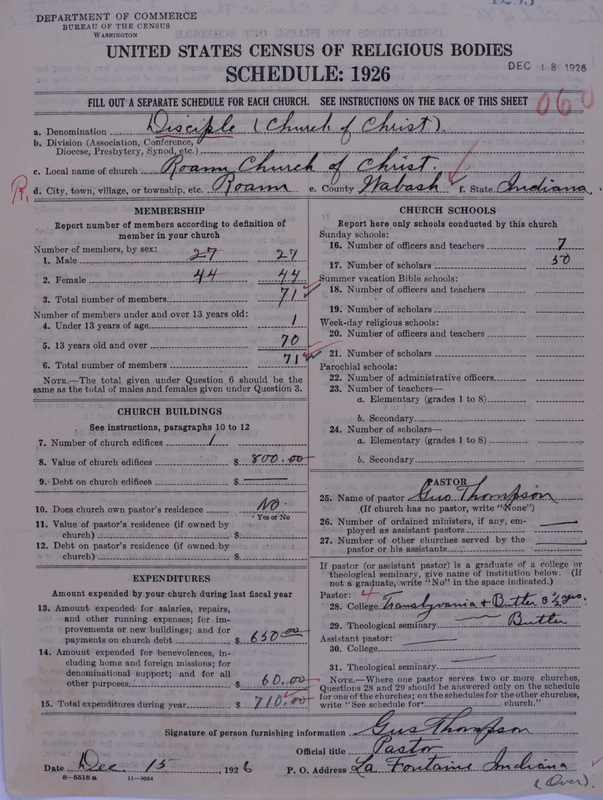 DEPARTMENT OF COMMERCE
BUREAU OF THE CENSUS
WASHINGTON
UNITED STATES CENSUS OF RELIGIOUS BODIES
SCHEDULE: 1926
DEC 18 1926
FILL OUT A SEPARATE SCHEDULE FOR EACH CHURCH. SEE INSTRUCTIONS ON THE BACK OF THIS SHEET
060
a. Denomination Disciple (Church of Christ).
b. Division (Association, Conference, Diocese, Presbytery, Synod, etc.)
c. Local name of church Roann Church of Christ.
R. d. City, town, village, or township, etc. Roann e. County Wabash f. State Indiana.
MEMBERSHIP
Report number of members according to definition of
member in your church
Number of members, by sex:
1. Male 27 27
2. Female 44 44
3. Total number of members 71
Number of members under and over 13 years old:
4. Under 13 years of age 1
5. 13 years old and over 70
6. Total number of members 71
NOTE.—The total given under Question 6 should be the
same as the total of males and females given under Question 3.
CHURCH BUILDINGS
See instructions, paragraphs 10 to 12
7. Number of church edifices 1
8. Value of church edifices $ 800.00
9. Debt on church edifices $
10. Does church own pastor's residence No.
Yes or No
11. Value of pastor's residence (if owned by
church) $
12. Debt on pastor's residence (if owned by
church) $
EXPENDITURES
Amount expended by your church during last fiscal year
13. Amount expended for salaries, repairs,
and other running expenses; for im-
provements or new buildings; and for
payments on church debt $ 650.00
14. Amount expended for benevolences, in-
cluding home and foreign missions; for
denominational support; and for all
other purposes $ 60.00
15. Total expenditures during year $ 710.00
CHURCH SCHOOLS
Report here only schools conducted by this church
Sunday schools:
16. Number of officers and teachers 7
17. Number of scholars 50
Summer vacation Bible schools:
18. Number of officers and teachers
19. Number of scholars
Week-day religious schools:
20. Number of officers and teachers
21. Number of scholars
Parochial schools:
22. Number of administrative officers
23. Number of teachers—
a. Elementary (grades 1 to 8)
b. Secondary
24. Number of scholars—
a. Elementary (grades 1 to 8)
b. Secondary
PASTOR
25. Name of pastor Gus Thompson
(If church has no pastor, write "None")
26. Number of ordained ministers, if any, em-
ployed as assistant pastors
27. Number of other churches served by the
pastor or his assistants
If pastor (or assistant pastor) is a graduate of a college or
theological seminary, give name of institution below. (If
not a graduate, write "No" in the space indicated.)
Pastor: 4
28. College Transylvania & Butler 3½ yrs.
29. Theological seminary Butler
Assistant pastor:
30. College
31. Theological seminary
NOTE.—Where one pastor serves two or more churches,
Questions 28 and 29 should be answered only on the schedule
for one of the churches; on the schedules for the other churches,
write "See schedule for church."
Signature of person furnishing information Gus Thompson
Official title Pastor
Date Dec. 15, 1926 P. O. Address La Fontaine Indiana
8—5518a 11—9054
(Over).